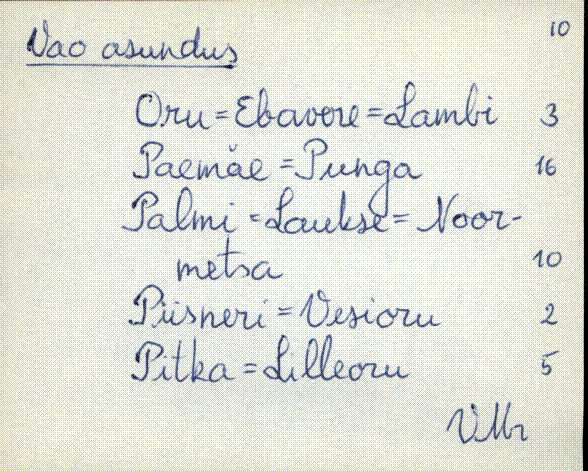 10
Vao asundus
Oru=Ebavere=Lambi 3
Paemäe=Punga 16
Palmi=Laukse=Noor-
metsa 10
Piisneri=Vesioru 2
Pitka=Lilleoru 5
VMr